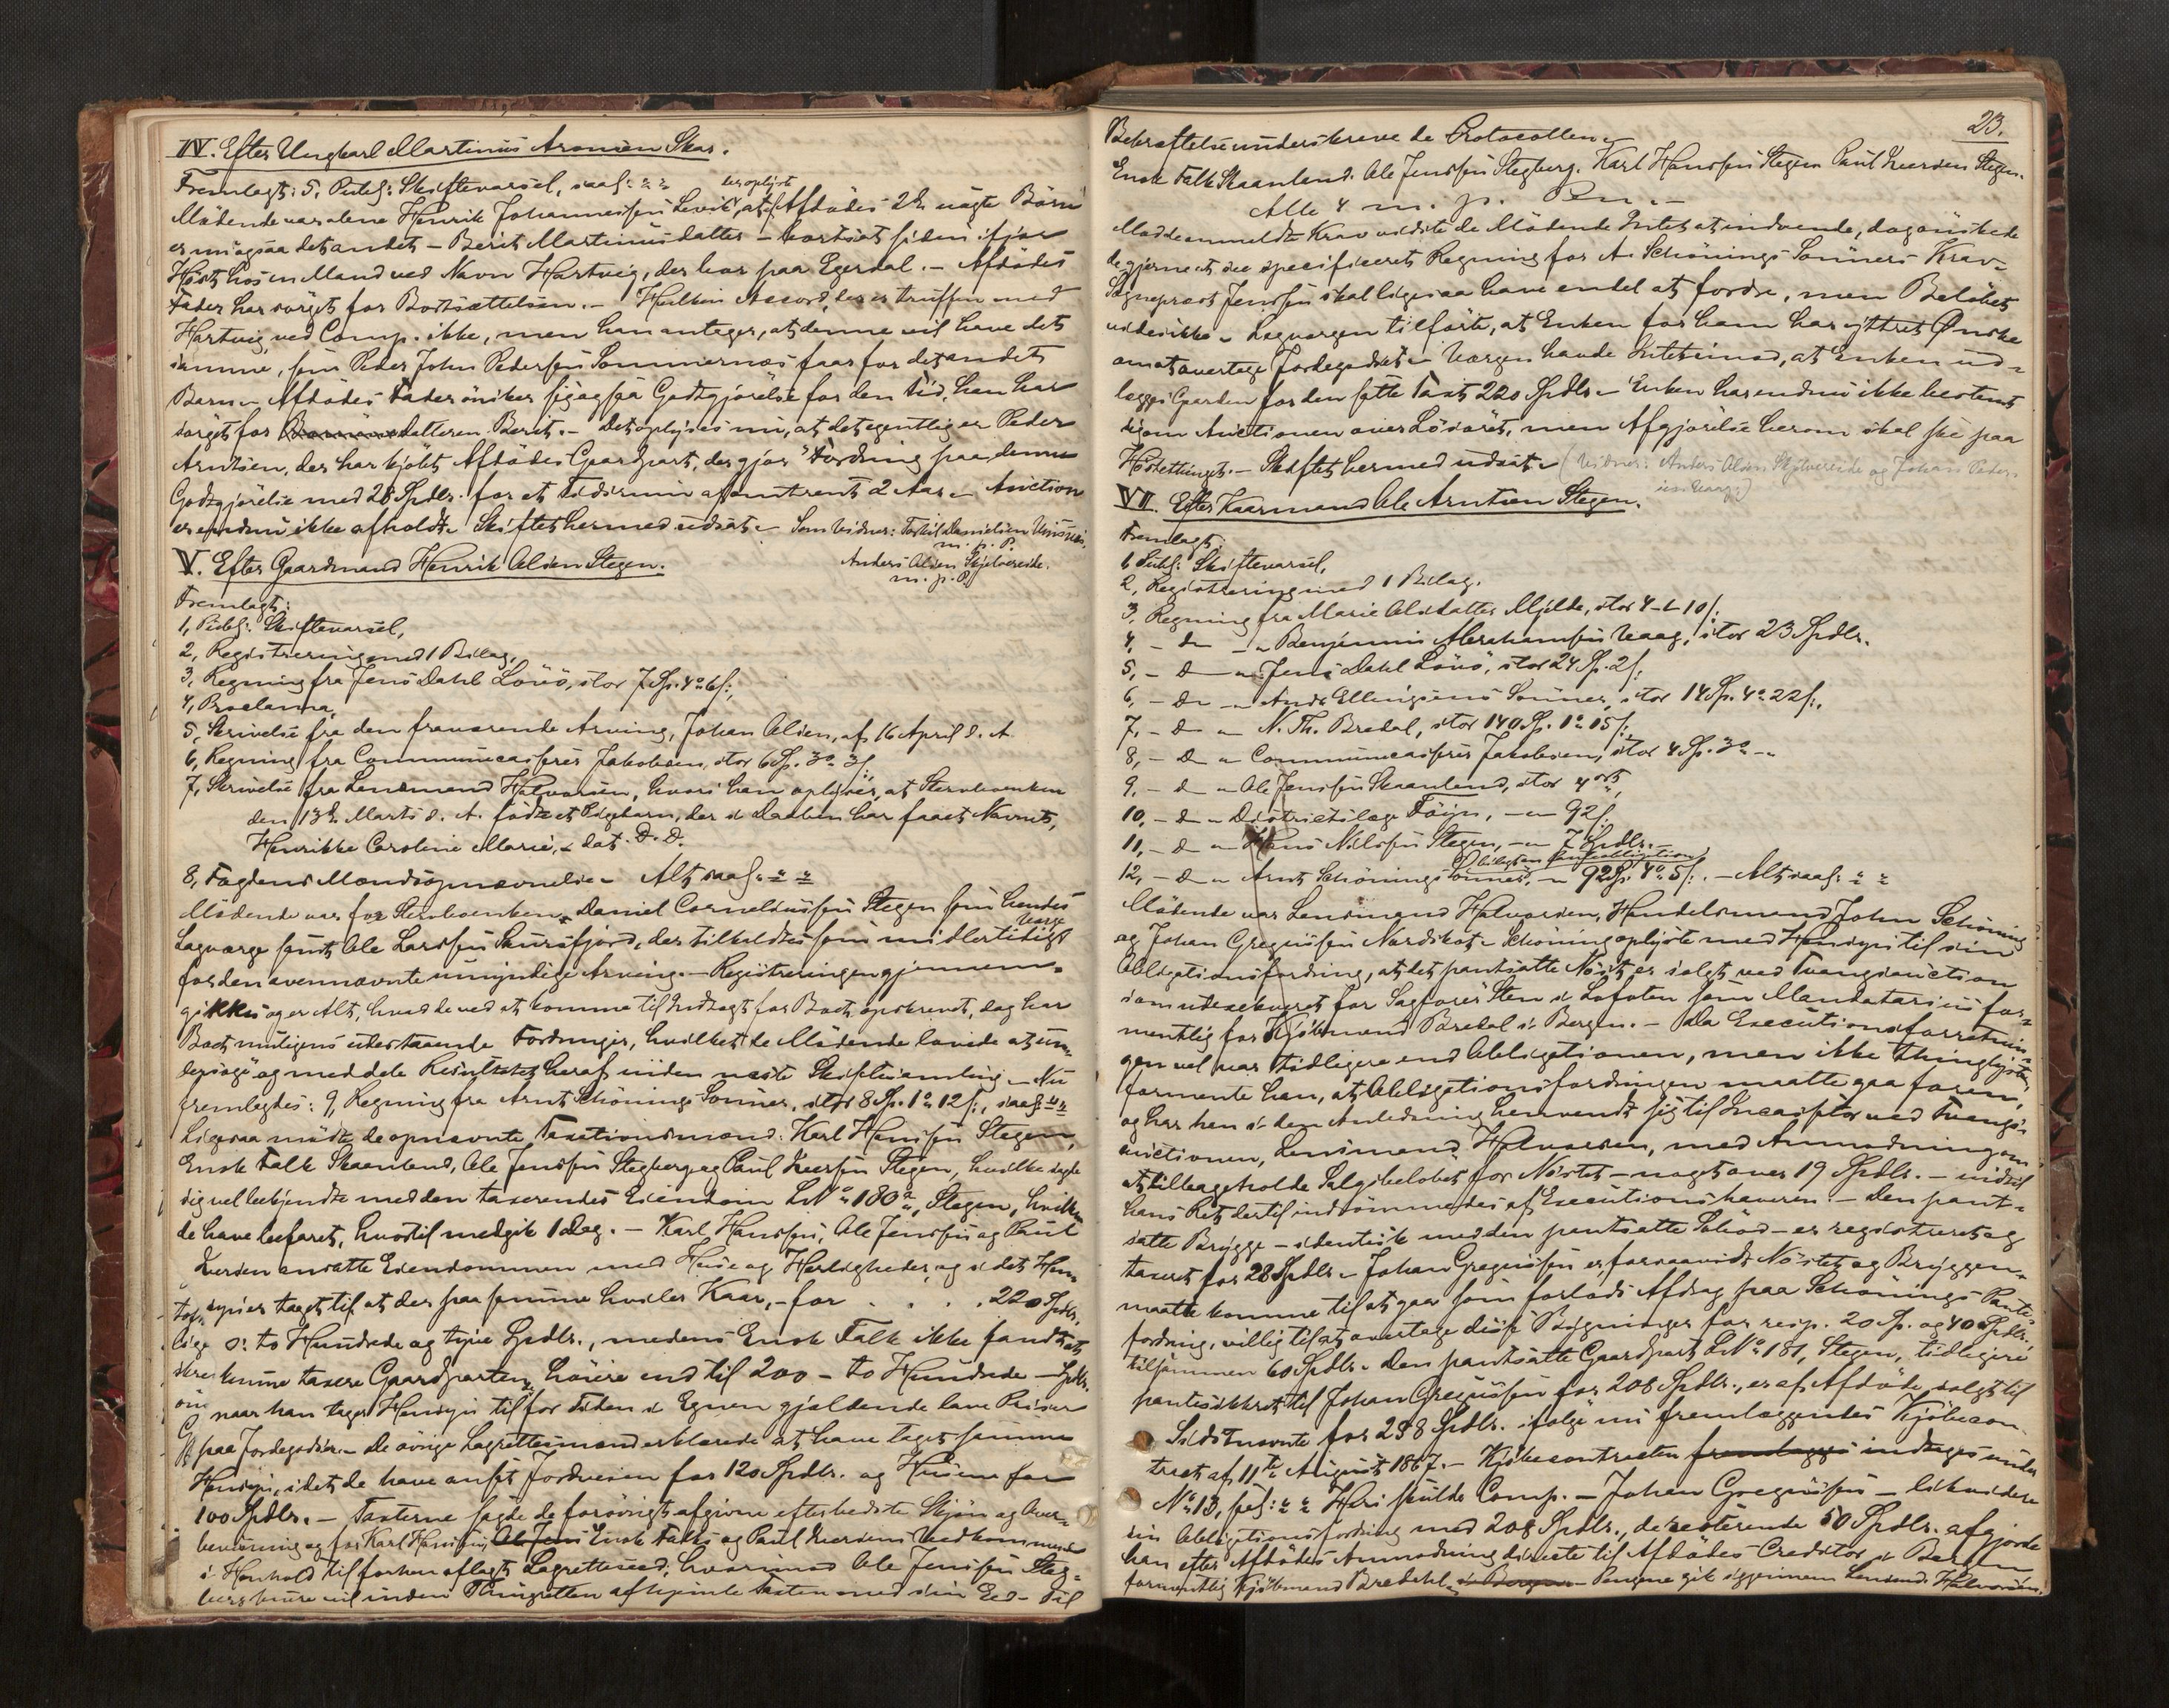 IV. Efter Ungkarl Martinus Aronsen Skar.
Fremlagt: 5, Publ: Skiftevarsel, saal: " "
der oplyste
Mødende var alene Henrik Johannessen Levik, at af Afdødes 2de uægte Børn
er nu ogsaa det andet – Berit Martinusdatter – bortsat siden ifjor
Høst hos en Mand ved Navn Hartvig, der bor paa Egerdal. – Afdødes
Fader har sørget for Bortsættelsen. – Hvilken Accord, der er truffen med
Hartvig, ved Comp. ikke, men han antager, at denne vil have det
samme, som Peder John Pedersen Sommernæs faar for det andet
Barn – Afdødes Fader ønsker sig ogsaa Godtgjørelse for den Tid, han har
sørget for datteren Berit. – Det oplyses nu, at det egentlig er Peder
Arntsen, der har kjøbt Afdødes Gaardpart, der gjør Fordring paa denne
Godtgjørelse med 28 Spdlr. for et Tidsrum af omtrent 2 Aar – Auction
er endnu ikke afholdt. Skiftet hermed udsat. – Som Vidner: Torkil Danielsen
m. p. P.
Anders Olsen Skjelvereide.
m. p. P.
V. Efter Gaardmand Henrik Olsen Stegen.
Fremlagt:
1, Publ: Skiftevarsel,
2, Registrering med 1 Bilag,
3, Regning fra Jens Dahl Løvø, stor 7 Sp. 4 " 6 s.,
4, Proclama,
5, Skrivelse fra den fraværende Arving, Johan Olsen, af 16 April d. A.
6, Regning fra Communecasserer Jakobsen, stor 6 Sp. 3 " 3 s.,
7, Skrivelse fra Lensmand Halvorsen, hvori han oplyser, at Stervboenken
den 13de Marts d. A. fødte et Pigebarn, der i Daaben har faaet Navnet,
Henrikke Caroline Marie, dat. D. D.
8, Fogdens Mandsopnævnelse – Alt saal: " "
Mødende var for Stervboenken Daniel Corneliussen Stegen som hendes
Værge
Lagværge samt Ole Larssen Skursfjord, der tilkaldtes som midlertidigt
for den ovennævnte umyndige Arving. – Registreringen gjennem-
gikkes og er Alt, hvad de ved at komme til Indtægt for Boet opskrevet, dog har
Boet muligens udestaaende Fordringer, hvilket de Mødende lovede at un-
dersøge og meddele Resultatet heraf inden næste Skiftesamling – Nu
fremlagdes: 9, Regning fra Arnt Schønings Sønner, stor 8 Sp. 1 " 12 s., saal: " "
Ligesaa mødte de opnævnte Taxationsmænd: Karl Hanssen Stegen,
Enok Falk Skaanland, Ole Jenssen Stegberg og Paul Iversen Stegen, hvilke sagde
sig vel bekjendte med den taxerendes Eiendom L.No 180a, Stegen, hvilken
de have befaret, hvortil medgik 1 Dag. – Karl Hanssen, Ole Jenssen og Paul
Iversen ansatte Eiendommen med Huse og Herligheder, og i det Hen-
syn er taget til at der paa samme hviler Kaar, – for . . . . 220 Spdlr,
o: to Hundrede og tyve Spdlr., medens Enok Falk ikke fandt at
kunne taxere Gaardparten høiere end til 200 – to Hundrede – Spdlr.
naar han tager Hensyn til for Tiden i Egnen gjældende lave Priser
paa Jordegods. – De øvrige Lagrettesmænd erklærede at have taget samme
Hensyn, idet de have ansat Jordveien for 120 Spdlr. og Husene for
100 Spdlr. – Taxterne sagde de forøvrigt afgivne efter bedste Skjøn og Over-
beviisning og for Karl Hanssens, Enok Falks og Paul Iversens Vedkommende
i Henhold til forhen aflagt Lagretteseed, hvorimod Ole Jenssen Steg-
berg inden Thingretten afhjemle Taxten med sin Eed – Til
23.
Bekræftelse underskreve de Protocollen –
Enok Falk Skaanland. Ole Jenssen Stegberg. Karl Hanssen Stegen Paul Iversen Stegen.
Alle 4 m. p. Pen. –
Mod de anmeldte Krav vidste de Mødende Intet at indvende, dog ønskede
de gjerne at see specificeret Regning for A. Schønings Sønners Krav –
Sognepræst Jenssen skal ligesaa have endel at fordre, men Beløbet
vides ikke – Lagværgen tilførte, at Enken for ham har yttret Ønske
om at overtage Jordegodset – Værgen havde Intet imod, at Enken ud-
lægges Gaarden for den satte Taxt 220 Spdlr – Enken har endnu ikke bestemt
sig om Auctionen over Løsøret, men Afgjørelse herom skal ske paa
Høstethinget. – Skiftet hermed udsat – (Vidner: Anders Olsen Skjelvereide og Johan Peder-
sen Vaag.)
VI. Efter Kaarmand Ole Arntsen Stegen.
Fremlagt:
1 Publ: Skiftevarsel,
2, Registrering med 1 Bilag.
3, Regning fra Marie Olsdatter Mjelde, stor 4 – " – 10 s.
4, – do – " Benjamin Abrahamsen Vaag, stor 23 Spdlr.
5, – do – " Jens Dahl Løvø, stor 24 Sp. 2 s.
6, – do – " Ands Ellingsens Sønner, stor 140 Sp. 4 " 22 s.
7, – do – " N. Th. Bredal, stor 140 Sp. 1 " 15 s.
8, – do – " Communecasserer Jakobsen, stor 4 Sp. 3 " – "
9, – do – " Ole Jenssen Skaanland, stor 4 ort,
10, – do – " Districtslæge Føyn, – " – 92 s.
11, – do – " Hans Nilssen Stegen, – " – 7 Spdlr. –
12, – do – " Arnt Schønings Sønner, – " 92 Sp. 4 " 5 s. – Alt saal: " "
Mødende var Lensmand Halvorsen, Handelsmand John Schøning
og Johan Gregussen Nordskot – Schøning oplyste med Hensyn til sin
Obligationsfordring, at det pantsatte Nøst er solgt ved Tvangsauction
som udexekveret for Sagfører Sten i Lofoten som Mandatarius for-
mentlig for Kjøbmand Bredal i Bergen. – Da Executionsforretnin-
gen vel var tidligere end Obligationen, men ikke thinglyst,
formente han, at Obligationsfordringen maatte gaa foran,
og har han i den Anledning henvendt sig til Incassator ved Tvangs-
auctionen, Lensmand Halvorsen, med Anmodning om
at tilbageholde Salgsbeløbet for Nøstet – noget over 19 Spdlr. – indtil
hans Ret dertil indrømmedes af Executionshaveren – Den pant-
satte Brygge – identisk med den pantsatte Søbod – er registreret og
taxeret for 28 Spdlr – Johan Gregussen er, forsaavidt Nøstet og Bryggen
maatte komme til at gaa som forlods Afdrag paa Schønings Pante-
fordring, villig til at overtage disse Bygninger for resp. 20 Sp. og 40 Spdlr.
tilsammen 60 Spdlr. – Den pantsatte Gaardpart L.No 181, Stegen, tidligere
pantsikkret til Johan Gregussen for 208 Spdlr., er af Afdøde solgt til
Sidstnævnte for 258 Spdlr. ifølge nu fremlæggendes Kjøbecon-
tract af 11te August 1867. – Kjøbecontracten fremlægges indtages under
No 13, saal: " " Heri skulde Comp. – Johan Gregussen – likvidere
sin Obligationsfordring med 208 Spdlr., de resterende 50 Spdlr. afgjorde
han efter Afdødes Anmodning directe til Afdødes Creditor i Bergen
formentlig Kjøbmand Bredahl i Bergen – Pengene gik igjennem Lensmd. Halvorsen.